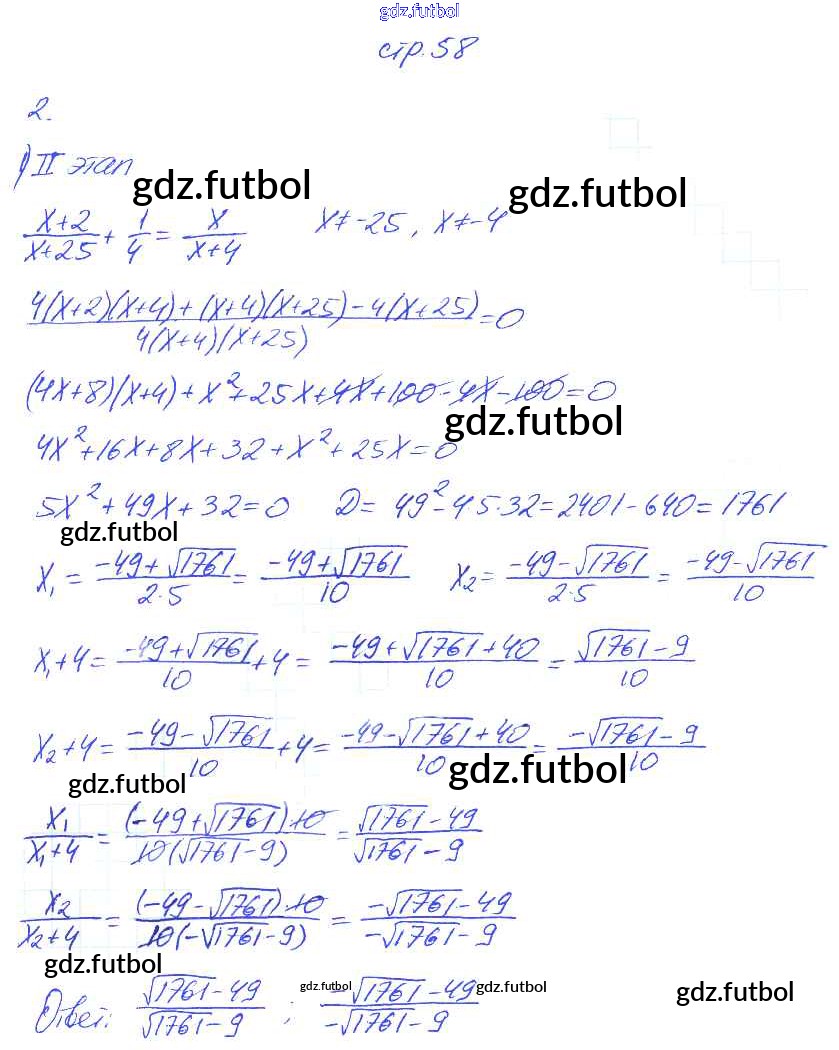 gdz.futbol
стр. 58
2.
1) II этап
gdz.futbol gdz.futbol
(x+2)/(x+25) + 1/4 = x/(x+4) x≠-25, x≠-4
(4(x+2)(x+4)+(x+4)(x+25)-4(x+25))/(4(x+4)(x+25)) = 0
(4x+8)(x+4)+x²+25x+4x+100-4x-100=0
gdz.futbol
4x²+16x+8x+32+x²+25x=0
5x²+49x+32=0 D= 49²-4·5·32=2401-640=1761
gdz.futbol
x₁ = (-49+√1761)/(2·5) = (-49+√1761)/10 x₂ = (-49-√1761)/(2·5) = (-49-√1761)/10
x₁+4 = (-49+√1761)/10 + 4 = (-49+√1761+40)/10 = (√1761-9)/10
x₂+4 = (-49-√1761)/10 + 4 = (-49-√1761+40)/10 = (-√1761-9)/10
gdz.futbol gdz.futbol
x₁/(x₁+4) = ((-49+√1761)·10)/(10(√1761-9)) = (√1761-49)/(√1761-9)
x₂/(x₂+4) = ((-49-√1761)·10)/(10(-√1761-9)) = (-√1761-49)/(-√1761-9)
gdz.futbol gdz.futbol gdz.futbol gdz.futbol
Ответ: (√1761-49)/(√1761-9) ; (-√1761-49)/(-√1761-9)